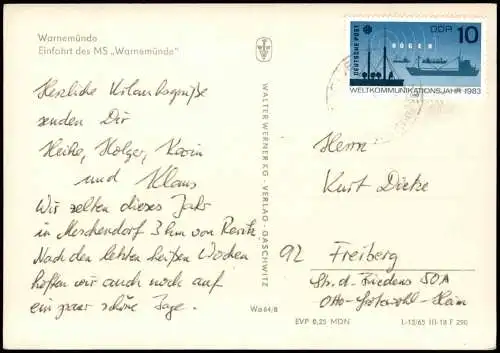 Warnemünde
Einfahrt des MS „Warnemünde"
DEUTSCHE POST
DDR 10
RÜGEN
WELTKOMMUNIKATIONSJAHR 1983
Herzliche Urlaubsgrüße
senden Dir
Heike, Holger, Karin
und Klaus
Wir zelten dieses Jahr
in Meschendorf 3 km von Rerik
Nach den letzten heißen Wochen
hoffen wir auch noch auf
ein paar schöne Tage.
WALTER WERNER KG · VERLAG · GASCHWITZ
Wa 64/8
Herrn
Kurt
92 Freiberg
Str. d. Friedens 50A
Otto-Grotewohl-Heim
EVP 0,25 MDN
L-13/65 III-18 F 290